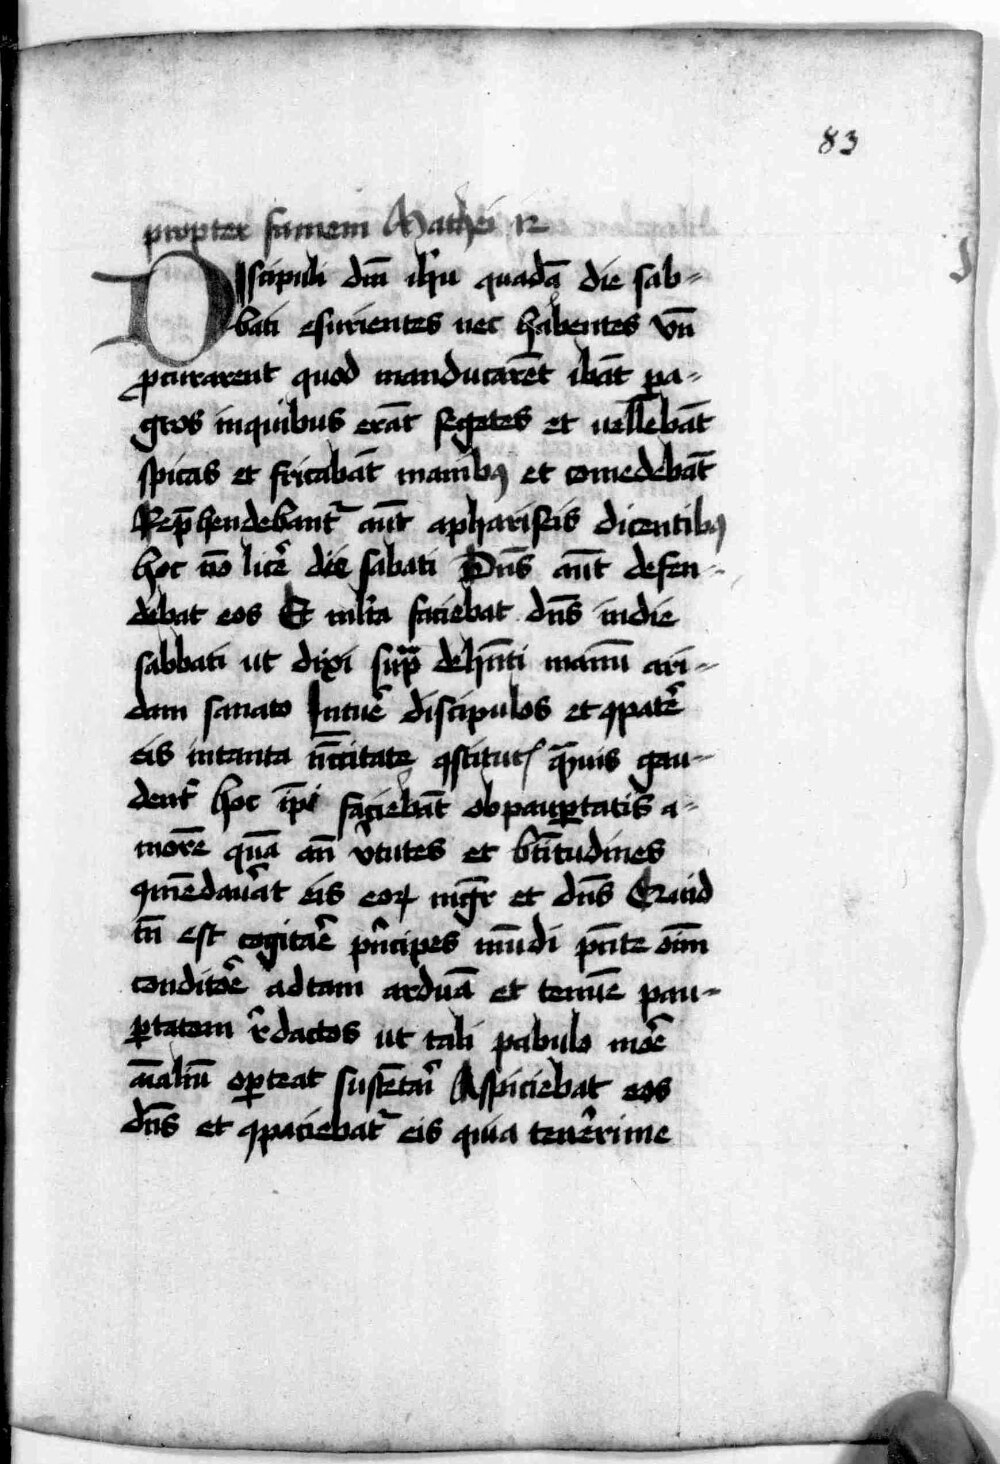 83
propter famem Mathei 12
Discipuli dni ihu quadā die sab-
bati esurientes nec habentes vn̄
ꝓcurarent quod manducarēt ibāt pa-
gros inquibus erāt segetes et uellebāt
spicas et fricabāt manibꝫ et comedebāt
Rep̄hendebant᷑ aūt aphariseis dicentibꝫ
hoc nō licē die sabati Dn̄s aūt defen-
debat eos Et ml̄ta faciebat dn̄s indie
sabbati ut dixi sup̄ᵃ deh̄nti manū ari-
dam sanato Intuē discipulos et ꝯpatē
eis intanta nc̄citate ꝯstitut qᵃ̄uis gau-
dent᷑ hoc ip̄i faciebāt obpauꝑtatis a-
morē quā an̄ v̄tutes et bt̄itudines
ꝯmēdauāt eis eoꝝ mgr̄ et dn̄s Quid
tn̄ est cogitāe pⁱncipes mūdi pn̄te oīm
conditōe adtam arduā et tenuē pau-
ꝑtatem r̄dactos ut tali pabulo moē
aīaliū oꝑteat sustētai᷑ Aspiciebat eos
dn̄s et ꝯpaciebat᷑ eis quia tenerime